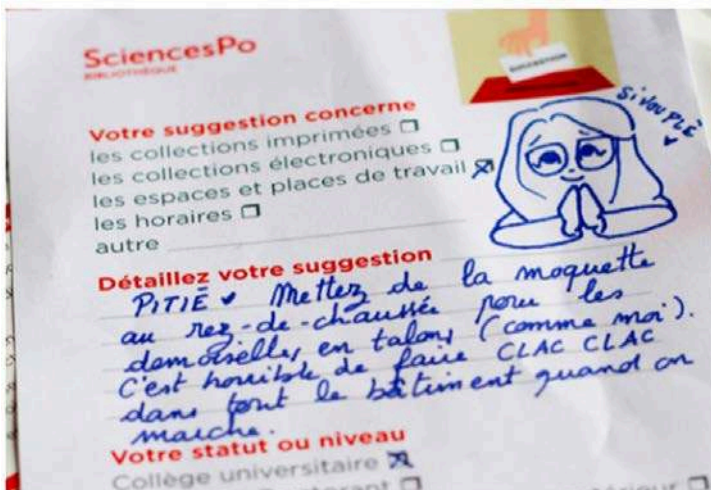 SciencesPo
BIBLIOTHÈQUE
SUGGESTION
SivouPLÉ
Votre suggestion concerne
les collections imprimées
les collections électroniques
les espaces et places de travail
les horaires
autre
Détaillez votre suggestion
PITIÉ Mettez de la moquette
au rez-de-chaussée pour les
demoiselles en talons (comme moi).
C'est horrible de faire CLAC CLAC
dans tout le bâtiment quand on
marche.
Votre statut ou niveau
Collège universitaire